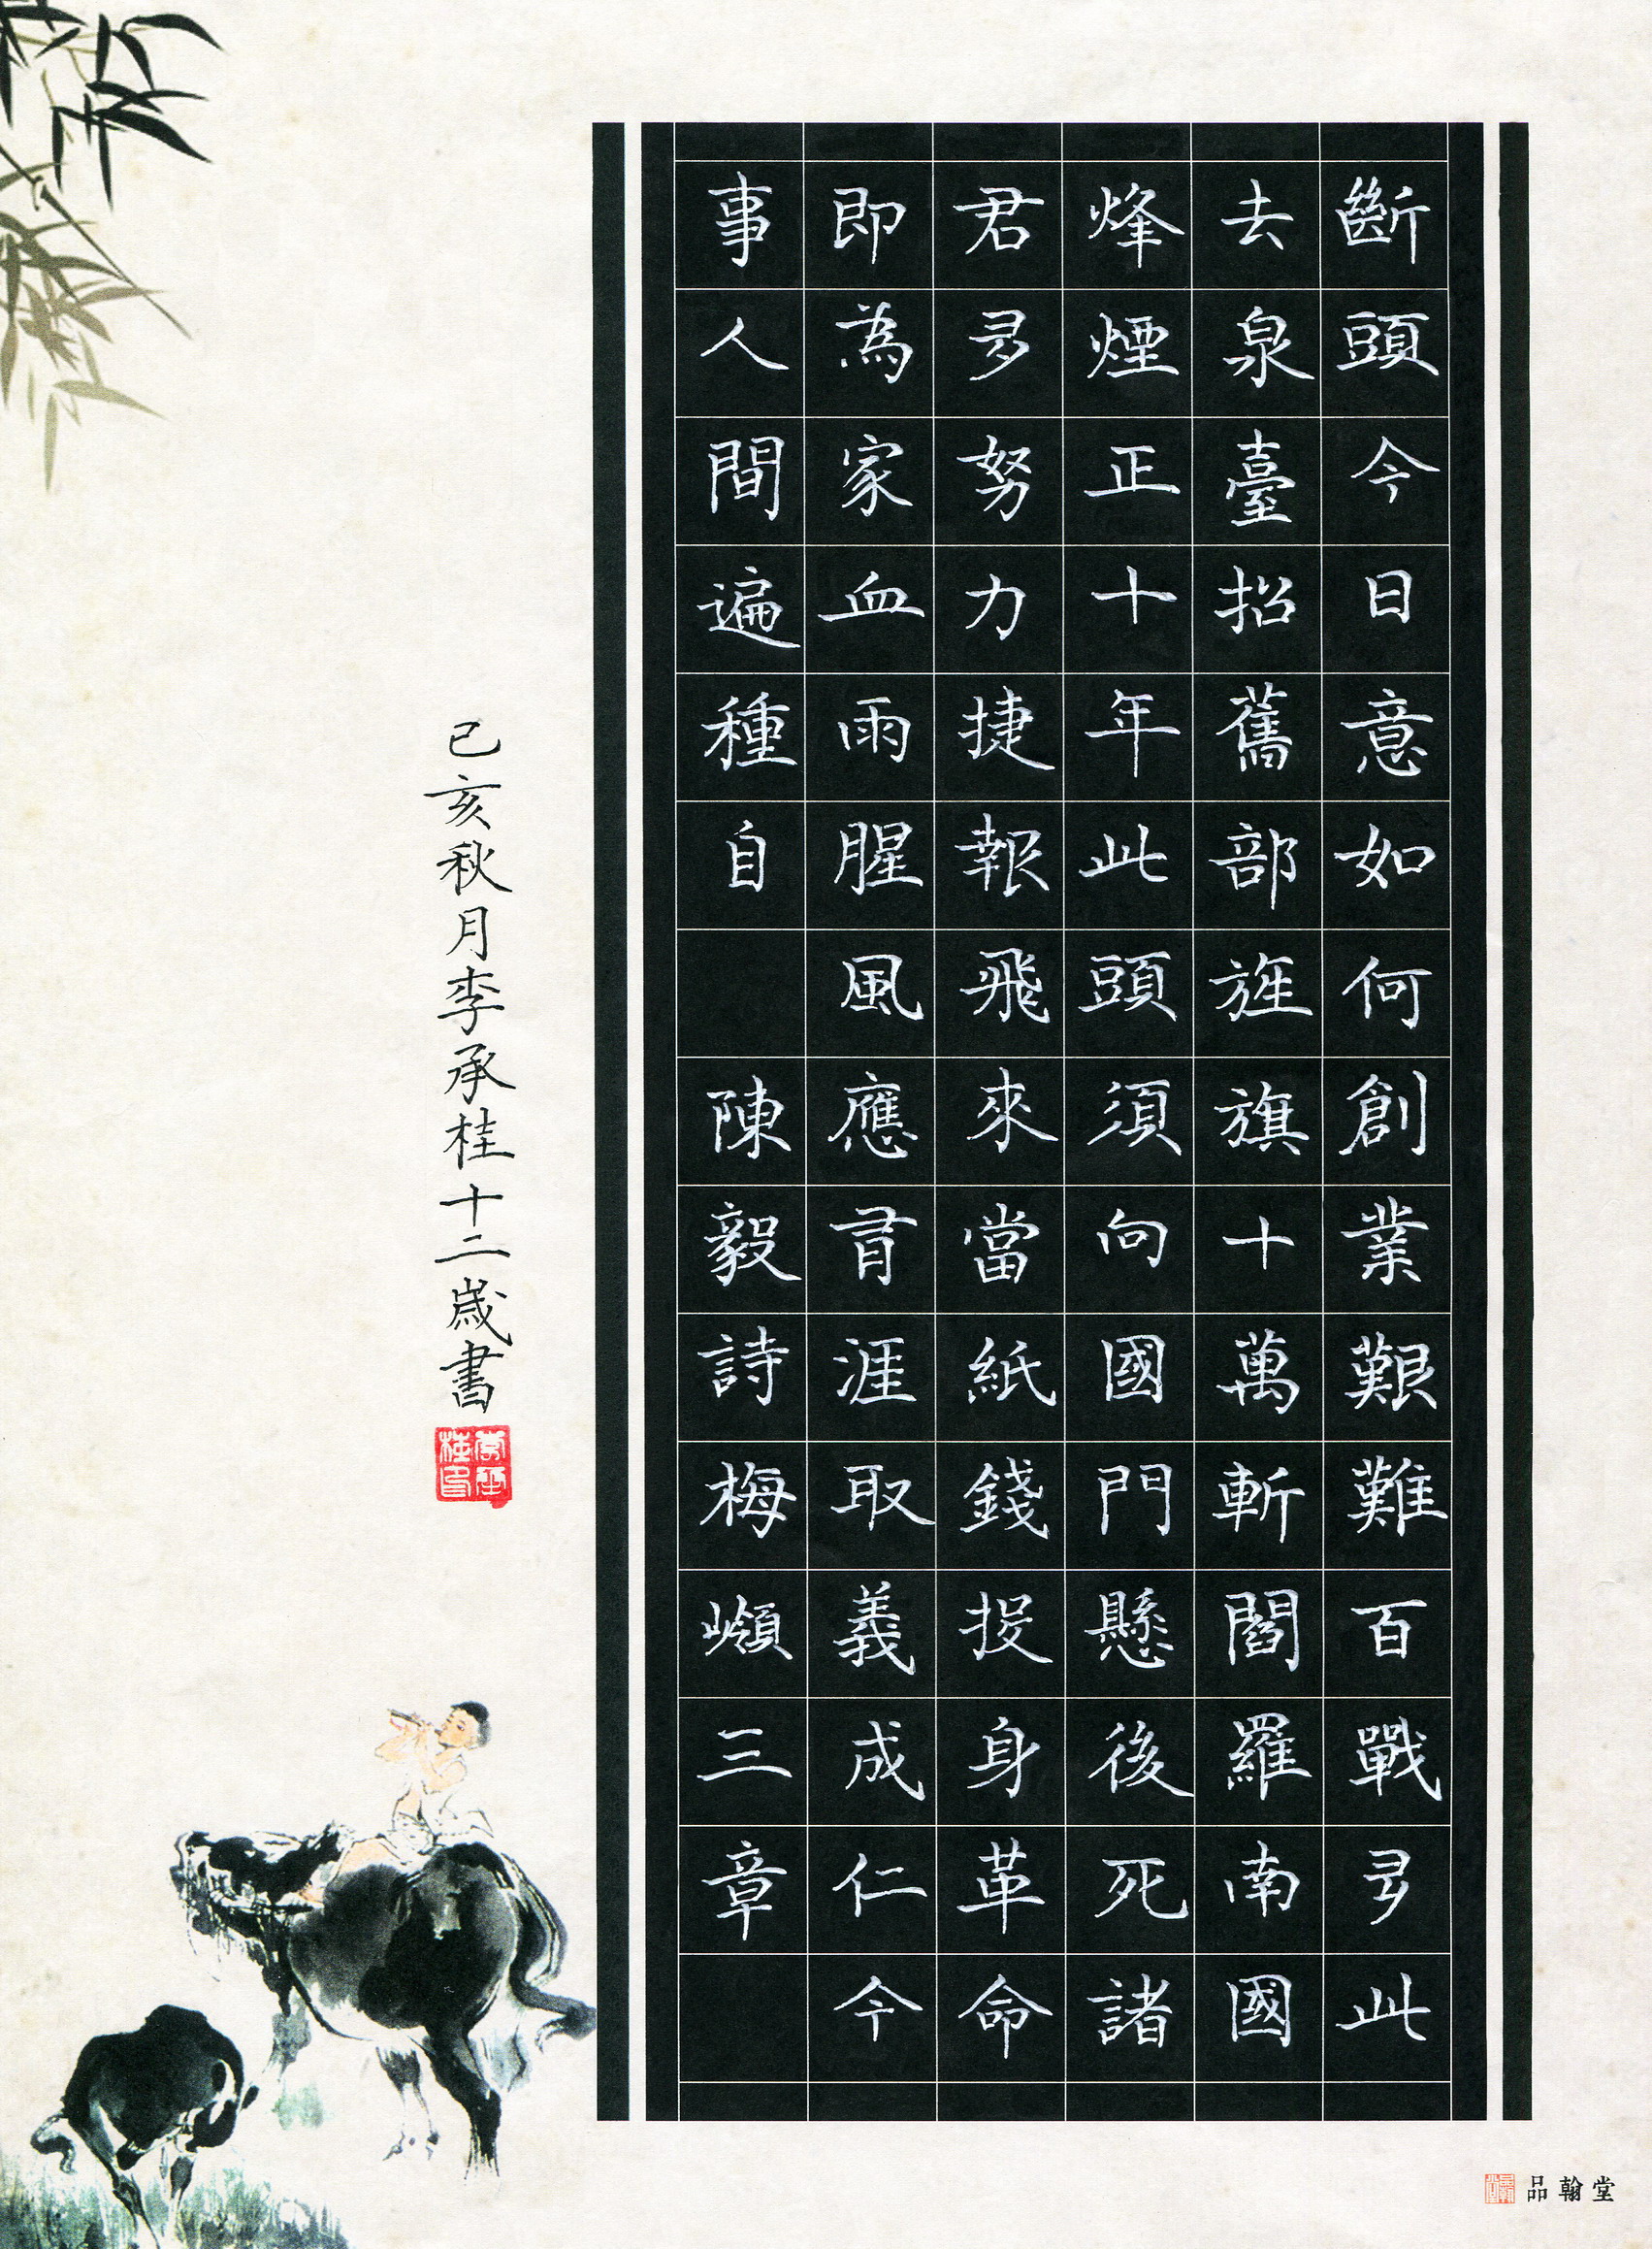 斷頭今日意如何創業艱難百戰多此
去泉臺招舊部旌旗十萬斬閻羅南國
烽煙正十年此頭須向國門懸後死諸
君多努力捷報飛來當紙錢投身革命
即為家血雨腥風應有涯取義成仁今
事人間遍種自 陳毅詩梅嶺三章
己亥秋月李承桂十二歲書
李承桂印
品翰堂